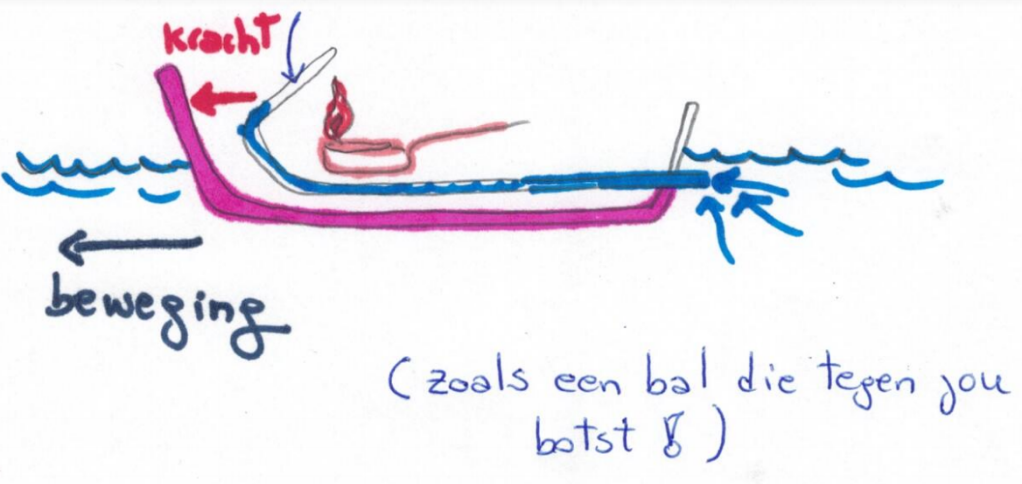 kracht
beweging
(zoals een bal die tegen jou
botst !)